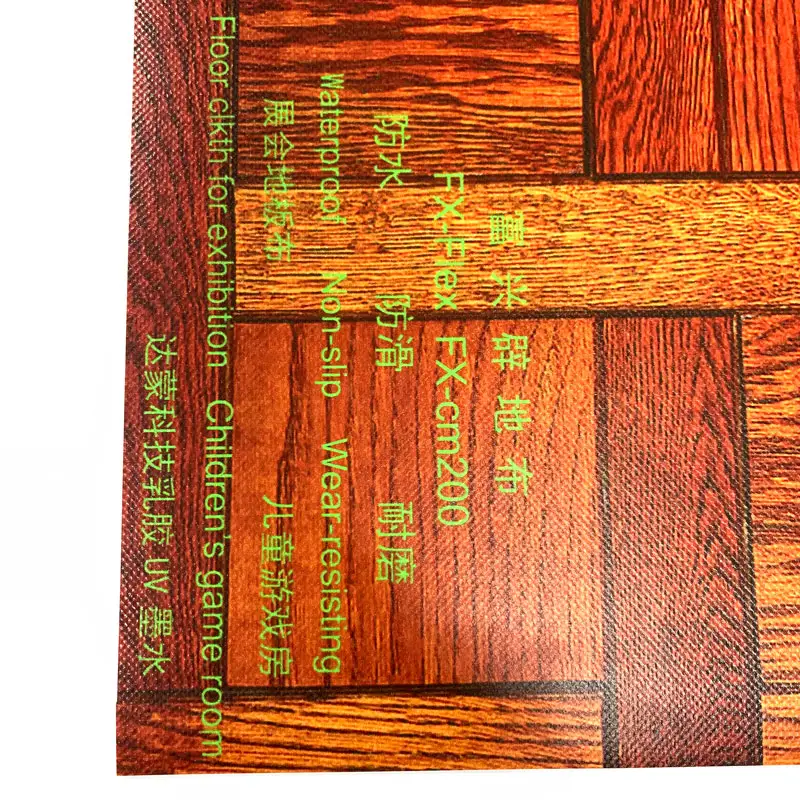 富兴辟地布
FX-Flex FX-cm200
防水 防滑 耐磨
Waterproof Non-slip Wear-resisting
展会地板布 儿童游戏房
Floor clkth for exhibition Children's game room
达蒙科技乳胶 UV 墨水